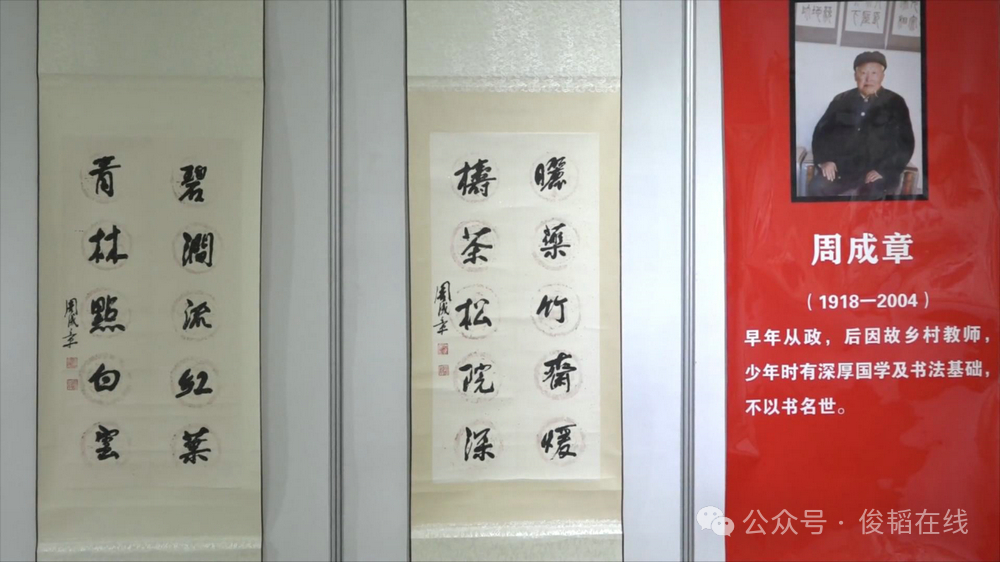 碧澗流紅葉
青林點白雲
周成章
曬藥竹齋煖
擣茶松院深
周成章
周成章
（1918—2004）
早年从政，后因故乡村教师，
少年时有深厚国学及书法基础，
不以书名世。
公众号·俊韬在线